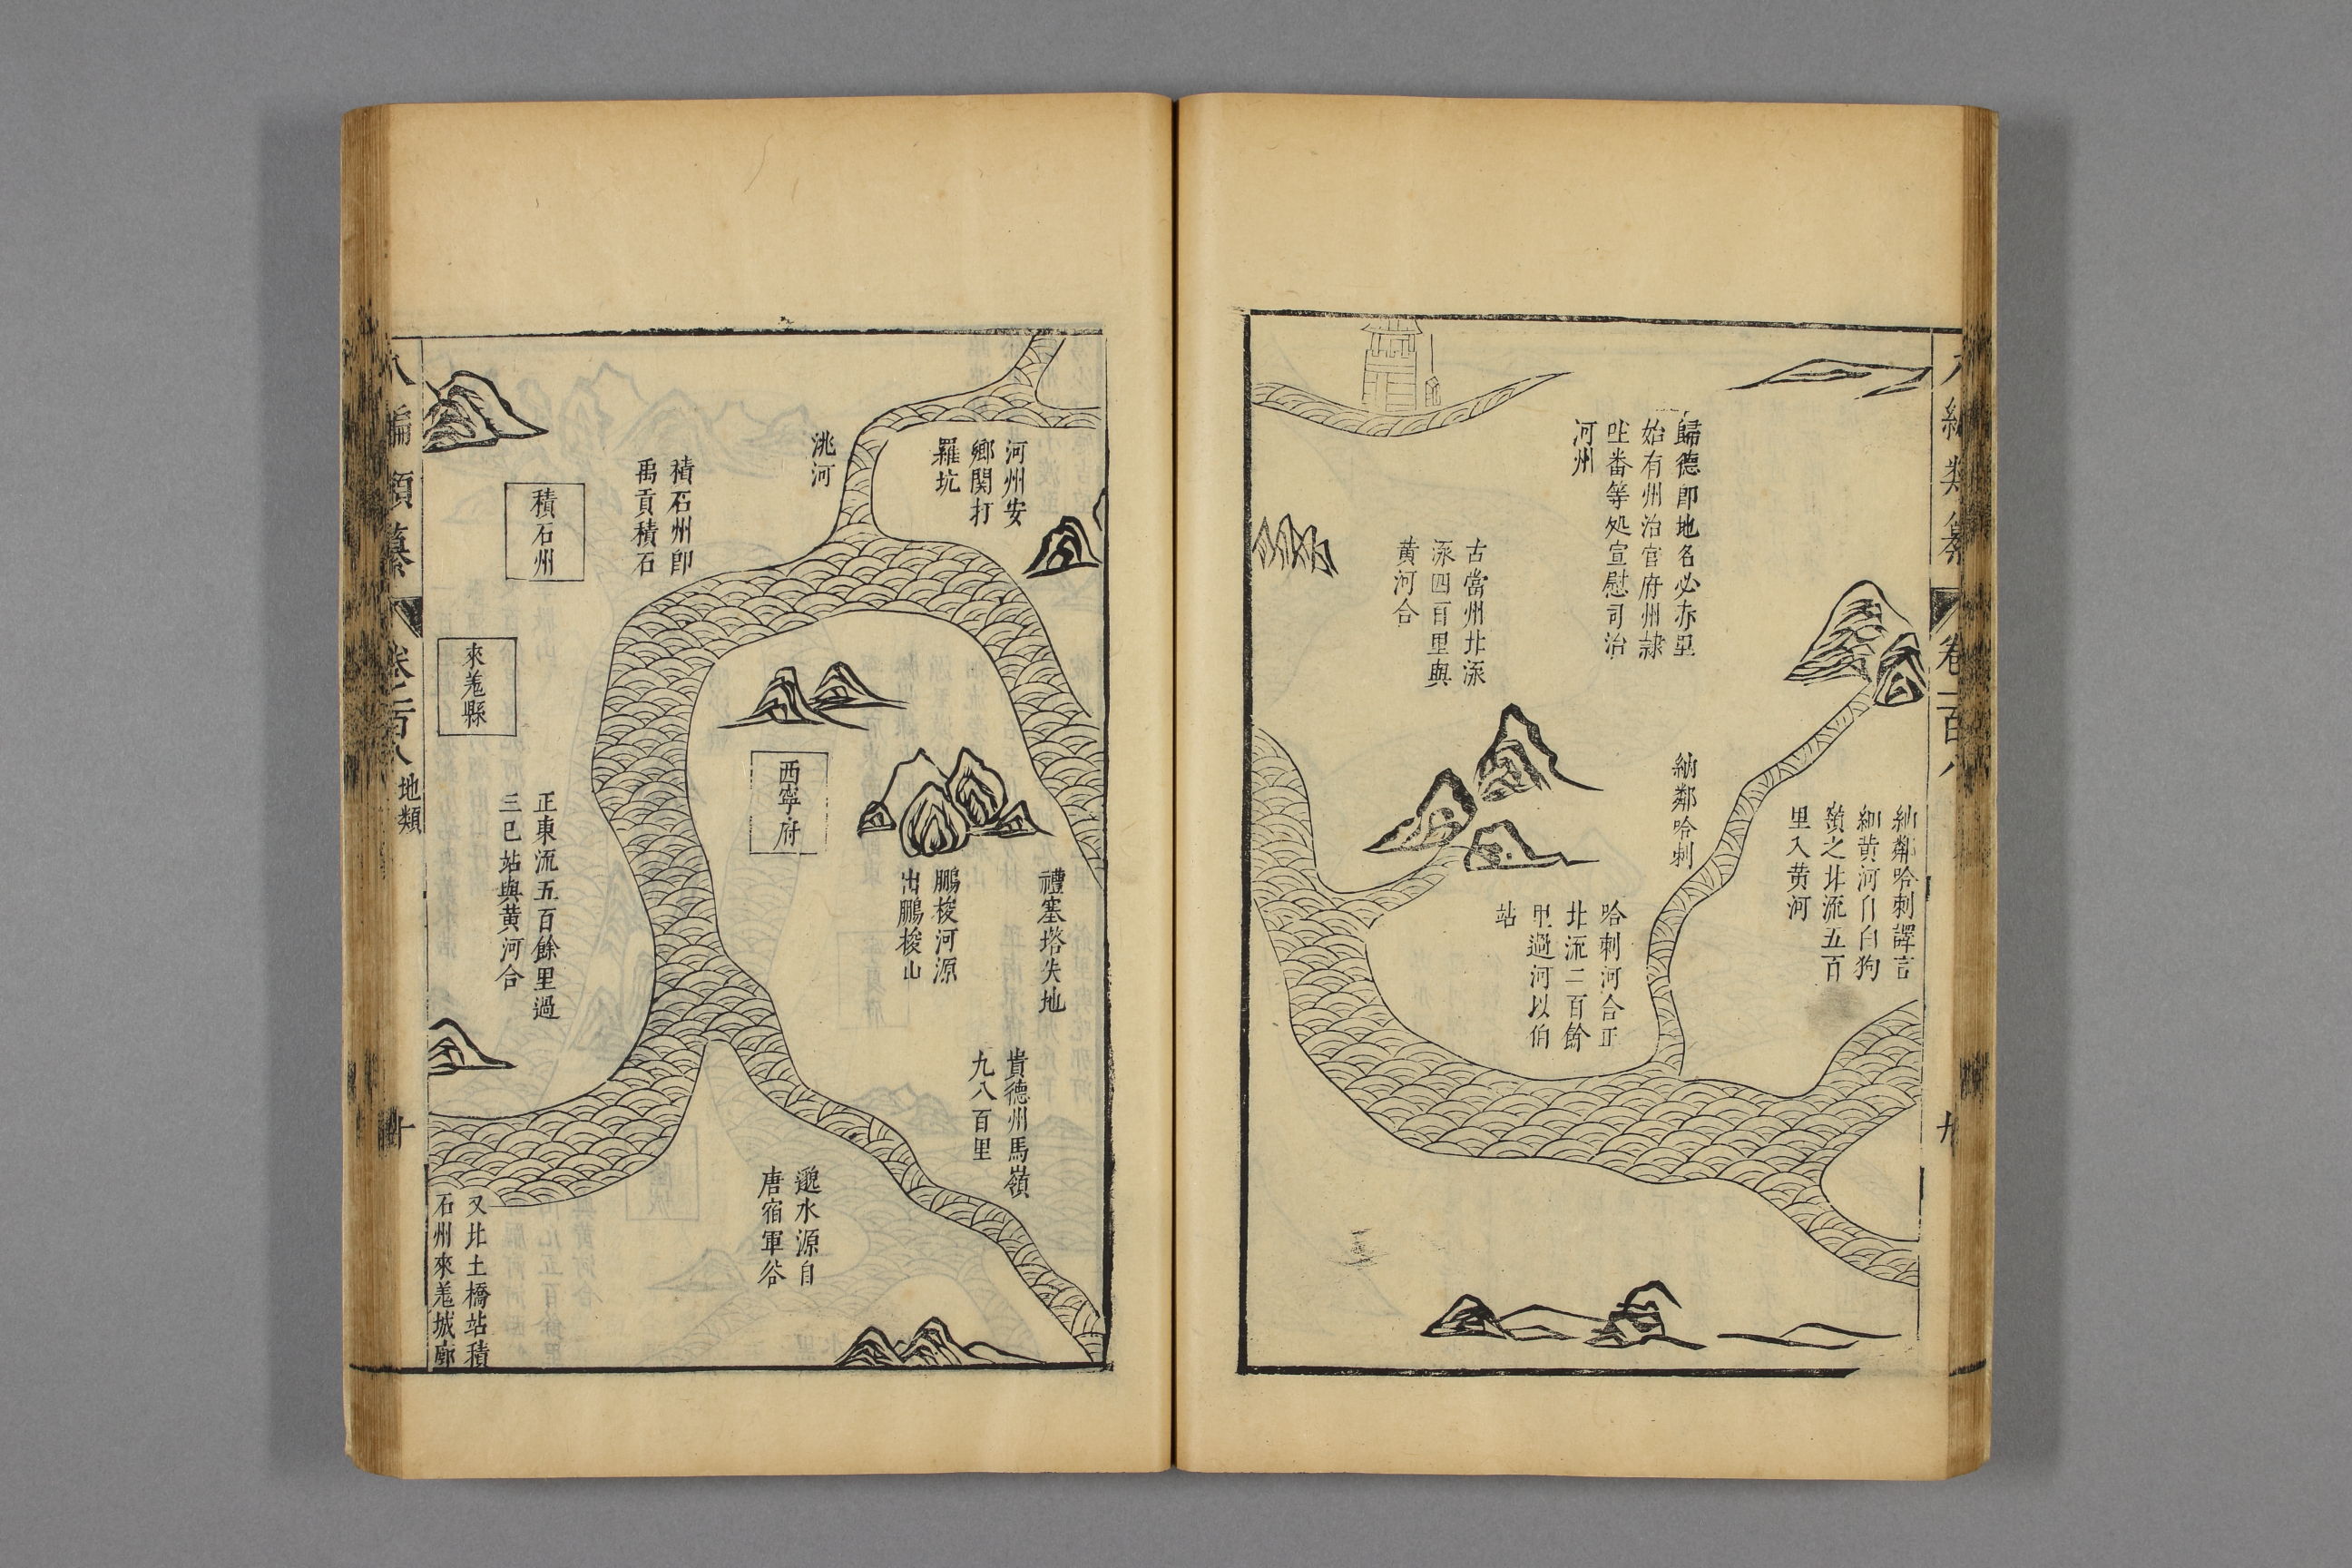 歸德卽地名必赤里
始有州治官府州隷
吐番等処宣慰司治
河州
古當州北流
流四百里與
黄河合
納鄰哈剌
納鄰哈剌譯言
細黄河自白狗
嶺之北流五百
里入黄河
哈剌河合正
北流二百餘
里過河以伯
站
河州安
鄉関打
羅坑
洮河
積石州卽
禹貢積石
積石州
來羗縣
西寧府
禮塞塔失地
鵬梭河源
出鵬梭山
正東流五百餘里過
三巳站與黄河合
貴德州馬嶺
九八百里
邈水源自
唐宿軍谷
又北土橋站積
石州來羗城廓
八編類纂
卷二百八
地類